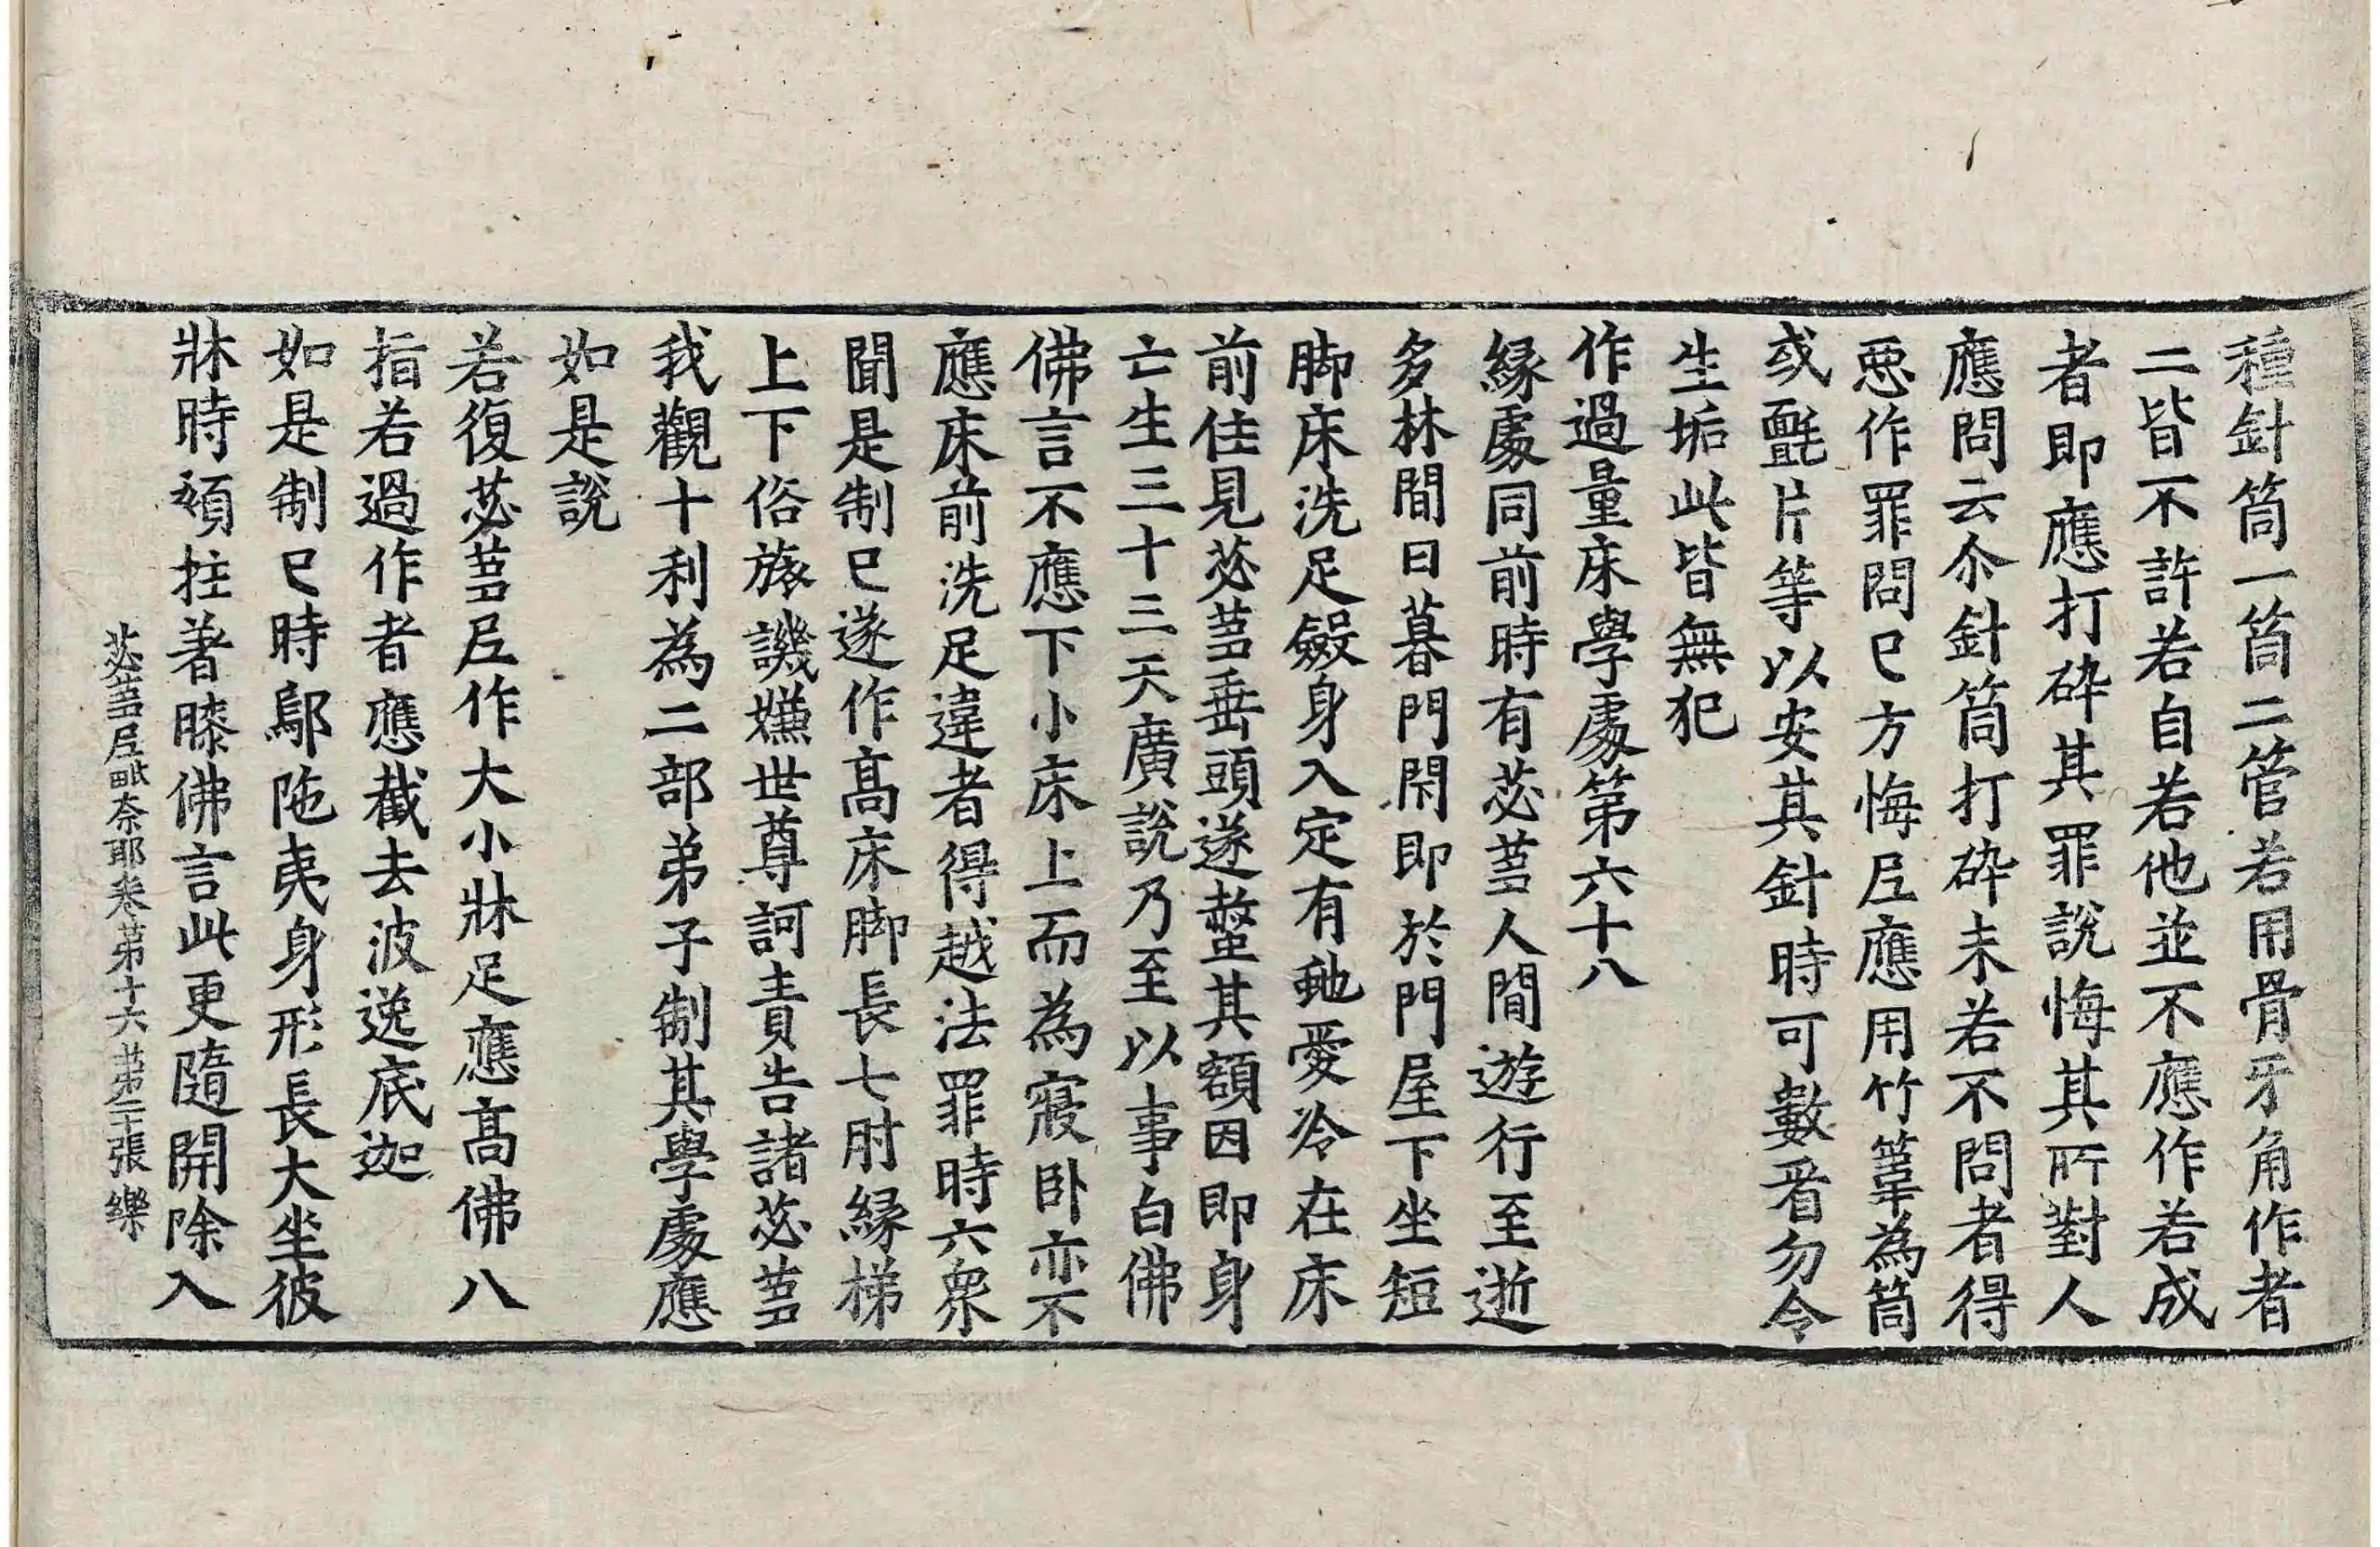 種針筒一筒二管若用骨牙角作者
二皆不許若自若他並不應作若成
者即應打碎其罪說悔其所對人
應問云尒針筒打碎未若不問者得
惡作罪問已方悔尼應用竹葦為筒
或㲲片等以安其針時可數看勿令
生垢此皆無犯
作過量床學處第六十八
緣處同前時有苾芻人間遊行至逝
多林間日暮門閉即於門屋下坐短
脚床洗足斂身入定有虵愛冷在床
前住見苾芻垂頭遂螫其額因即身
亡生三十三天廣說乃至以事白佛
佛言不應下小床上而為寢卧亦不
應床前洗足違者得越法罪時六眾
聞是制已遂作高床脚長七肘緣梯
上下俗旅譏嫌世尊訶責告諸苾芻
我觀十利為二部弟子制其學處應
如是說
若復苾芻尼作大小牀足應高佛八
指若過作者應截去波逸底迦
如是制已時鄔陁夷身形長大坐彼
牀時頦拄著膝佛言此更隨開除入
苾芻尼毗奈耶卷第十六 第二十張 樂